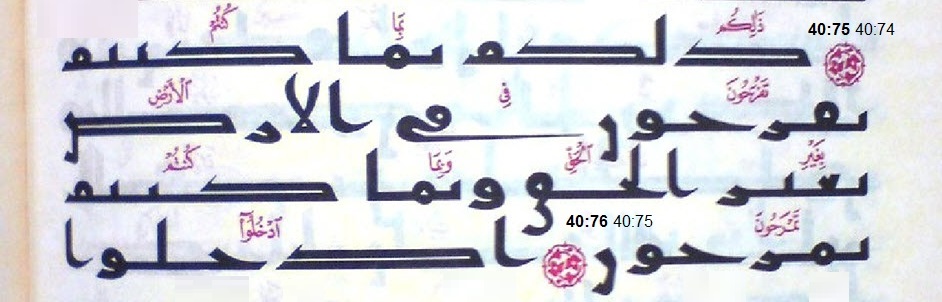 40:75 40:74
ذَٰلِكُم بِمَا كُنتُمْ
دلكم بما كىىم
تَفْرَحُونَ فِي ٱلْأَرْضِ
ىڡرحور ڡى الارص
بِغَيْرِ ٱلْحَقِّ وَبِمَا كُنتُمْ
ىعىر الحو وىما كىىم
40:76 40:75
تَمْرَحُونَ ٱدْخُلُوٓا۟
ىمرحور ادحلوا